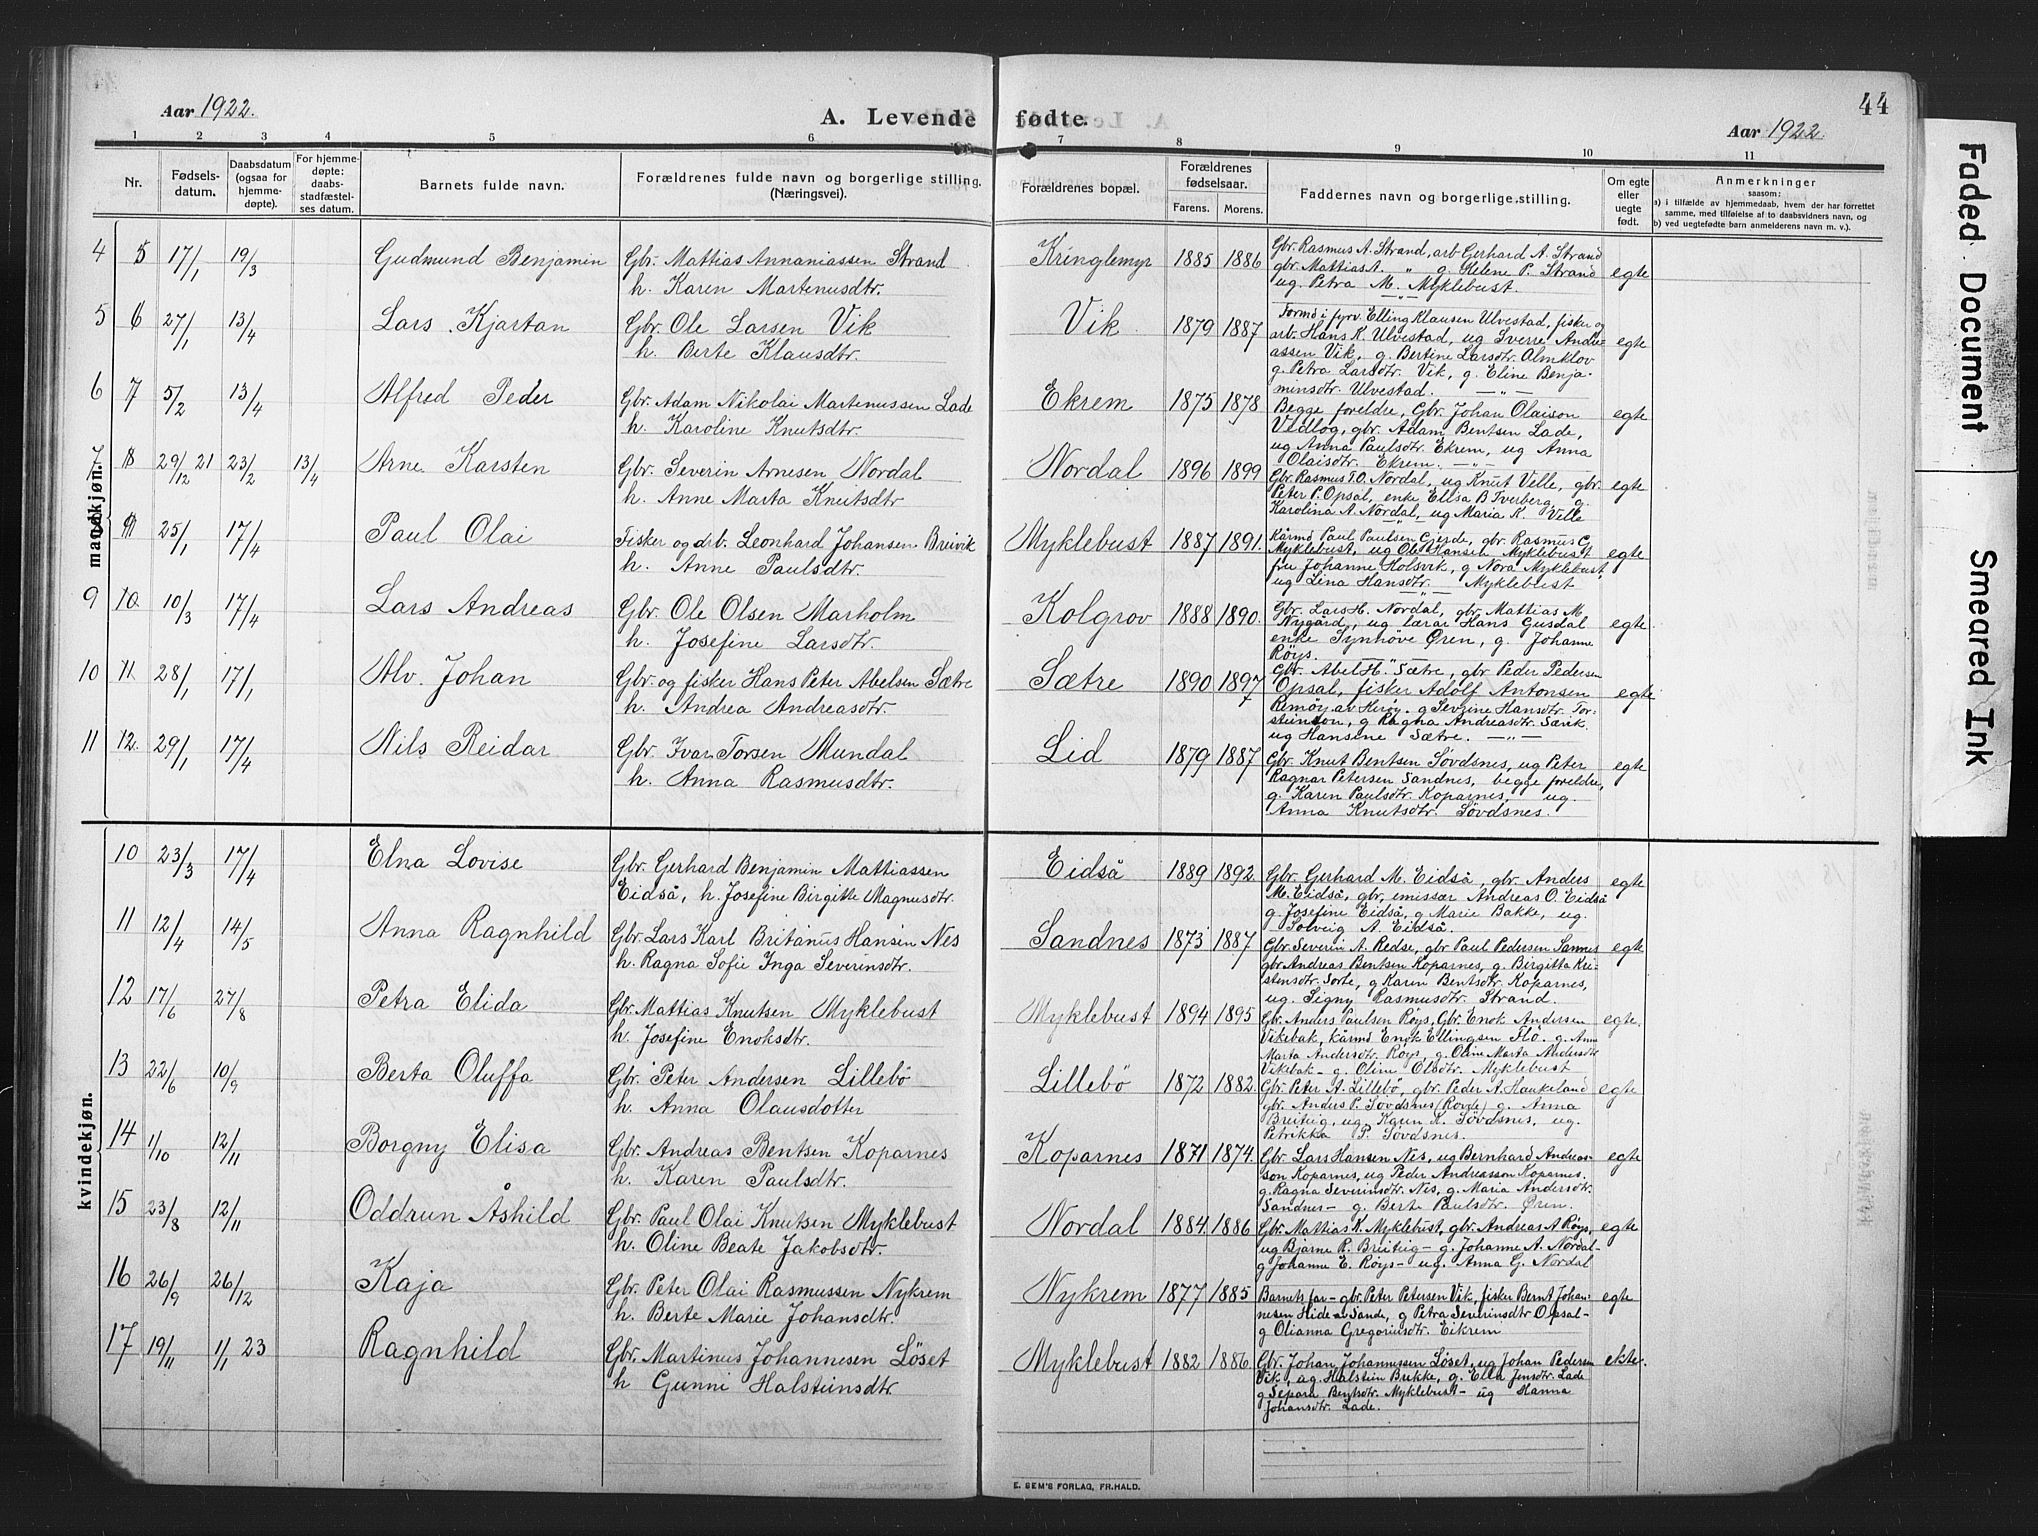 Aar 1922.
A. Levende fødte.
44
Aar 1922.
1 2 3 4 5 6 7 8 9 10 11
Nr.
Fødsels-
datum.
Daabsdatum
(ogsaa for
hjemme-
døpte).
For hjemme-
døpte:
daabs-
stadfæstel-
ses datum.
Barnets fulde navn.
Forældrenes fulde navn og borgerlige stilling.
(Næringsvei).
Forældrenes bopæl.
Forældrenes
fødselsaar.
Farens. Morens.
Faddernes navn og borgerlige stilling.
Om egte
eller
uegte
født.
Anmerkninger
saasom:
a) i tilfælde av hjemmedaab, hvem der har forrettet
samme, med tilføielse af to daabsvidners navn, og
b) ved uegtefødte barn anmelderens navn m. v.).
mandkjøn.
4 5 17/1 19/3 Gudmund Benjamin
Gbr. Mattias Annaniassen Strand
h. Karen Martenusdtr.
Kringlemyr 1885 1886
Gbr. Rasmus A. Strand, arb Gerhard A. Strand
gbr. Mattias A. " g Helene P. Strand
ug. Petra M. Myklebust.
egte
5 6 27/1 13/4 Lars Kjartan
Gbr. Ole Larsen Vik
h. Berte Klausdtr.
Vik 1879 1887
Formd i fyrv. Elling Klausen Ulvestad, fisker og
arb. Hans K. Ulvestad, ug Sverre Andre-
assen Vik, g. Bertine Larsdtr. Almklov
g. Petra Larsdtr. Vik, g. Eline Benja-
minsdtr. Ulvestad.
egte
6 7 5/2 13/4 Alfred Peder
Gbr. Adam Nikolai Martenussen Lade
h. Karoline Knutsdtr.
Ekrem 1875 1878
Begge foreldre, Gbr. Johan Olaison
gbr. Adam Bentsen Lade,
ug Anna Paulsdtr. Ekrem, ug Anna
Olaisdtr. Ekrem.
egte
7 8 29/12 21 23/2 13/4 Arne Karsten
Gbr. Severin Arnesen Nordal
h. Anne Marta Knutsdtr
Nordal 1896 1899
Gbr. Rasmus T.O. Nordal, ug Knut Velle, gbr.
Peter P. Opsal, enke Ellsa B Tverberg g.
Karolina A. Nordal, ug Maria K. Velle
egte
25/1 17/4 Paul Olai
Fisker og arb. Leonhard Johansen Breivik
h. Anne Paulsdtr.
Myklebust 1887 1891.
Kårmd Paul Paulsen Gjerde, gbr. Rasmus G.
Myklebust, ug Ole Hansen Myklebust
fru Johanne Holsvik, g Nora Myklebust,
ug Lina Hansdtr. Myklebust
egte
9 10. 10/3 17/4 Lars Andreas
Gbr. Ole Olsen Marholm
h. Josefine Larsdtr.
Kolgrov 1888 1890.
Gbr. Lars H. Nordal, gbr. Mattias M.
Nygård, ug lærar Hans Gusdal
enke Synnöve Ören, g. Johanne
Röys.
egte
10 11. 28/1 17/1 Alv. Johan
Gbr. og fisker Hans Peter Abelsen Sætre
h. Andrea Andreasdtr.
Sætre 1890 1897
Gbr. Abel H. Sætre, gbr Peder Pedersen
Opsal, fisker Adolf Antonsen
Remöy av Heröy. g Sevrine Hansdtr. Tor-
steinson, g Ragna Andreasdtr. Særik
ug Hansene Sætre.
egte
11 12. 29/1 17/4 Nils Reidar
Gbr. Ivar Torsen Mundal
h. Anna Rasmusdtr.
Lid 1879 1887
Gbr. Knut Bentsen Sövdsnes, ug Peter
Ragnar Petersen Sandnes, begge foreldre,
g. Karen Paulsdtr. Koparnes, ug.
Anna Knutsdtr. Sövdsnes.
egte
kvindekjøn.
10 23/3 17/4 Elna Lovise
Gbr. Gerhard Benjamin Mattiassen
Eidså, h. Josefine Birgitte Magnusdtr.
Eidså 1889 1892
Gbr. Gerhard M. Eidså, gbr. Anders
M. Eidså, gbr, emissær Andreas O. Eidså
g Josefine Eidså, g Marie Bakke, ug.
Solveig A. Eidså.
egte
11 12/4 14/5 Anna Ragnhild
Gbr. Lars Karl Britanus Hansen Nes
h. Ragna Sofie Inga Severinsdtr.
Sandnes 1873 1887
Gbr Severin A. Redse, gbr Paul Pedersen Sannes
gbr Andreas Bentsen Koparnes, g. Birgitta Kri-
stensdtr. Sorte, g Karen Bentsdtr. Koparnes,
ug. Signy Rasmusdtr. Strand.
egte
12 17/6 27/8 Petra Elida
Gbr. Mattias Knutsen Myklebust
h. Josefine Enoksdtr.
Myklebust 1894 1895
Gbr. Anders Paulsen Röys, Gbr. Enok Andersen
Vikebak, kårmd Enok Ellingsen Flö. g. Anne
Marta Andersdtr. Röys, g. Oline Marta Andersdtr
Vikebak - g Oline Olsdtr. Myklebust
egte.
13 22/6 10/9 Berta Oluffa
Gbr. Peter Andersen Lillebö
h. Anna Olausdotter
Lillebö 1872 1882
Gbr. Peter A. Lillebö, gbr. Peder A. Haukeland
gbr. Anders P. Sövdsnes (Rovde) g. Anna
Breiteig, ug Karen K. Sövdsnes, ug.
Petrikka P. Sövdsnes.
egte
14 1/10 12/11 Borgny Elisa
Gbr. Andreas Bentsen Koparnes
h. Karen Paulsdtr.
Koparnes 1871 1874
Gbr. Lars Hansen Nes, ug Bernhard Andreas-
son Koparnes, ug Peder Andreasson Koparnes.
g. Ragna Severinsdtr. Nes, g. Maria Andersdtr.
Sandnes - g. Berte Paulsdtr. Ören.
egte
15 23/8 12/11 Oddrun Åshild
Gbr. Paul Olai Knutsen Myklebust
h. Oline Beate Jakobsdtr.
Nordal 1884 1886
Gbr. Mattias K. Myklebust, gbr. Andreas A Röys,
ug Bjarne R. Breiteig - g. Johanne A. Nordal-
g Johanne E. Röys - ug. Anna G. Nordal
egte
16 26/9 26/12 Kaja
Gbr. Peter Olai Rasmussen Nykrem
h. Berte Marie Johansdtr.
Nykrem 1877 1885
Barnets far - gbr. Peter Petersen Vik, fisker Bernt Johan-
nesen Hide av Sande, g Petra Severinsdtr Opsal-
g Olianna Gregoriusdtr. Eikrem
egte
17 19/11 1/1 23 Ragnhild
Gbr. Martinus Johannesen Löset
h Gunni Halsteinsdtr
Myklebust 1882 1886
Gbr. Johan Johannessen Löset, ug Johan Pedersen
Vik, ag. Halstein Brekke, g. Ella Jensdtr. Lade
g Separa Bentsdtr. Myklebust - ug Hanna
Johansdtr. Lade.
ekte.
E. SEM'S FORLAG, FR.HALD.
Faded Document
Smeared Ink